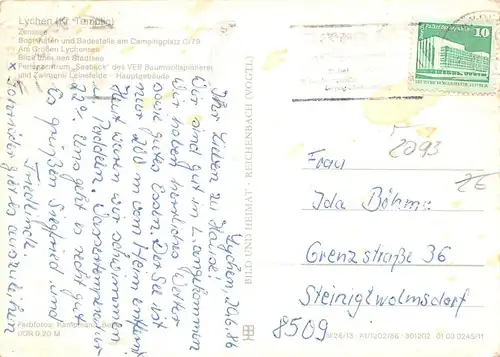 Lychen (Kr. Templin)
Zenssee
Bootshafen und Badestelle am Campingplatz C/79
Am Großen Lychensee
Blick über den Stadtsee
Ferienzentrum "Seeblick" des VEB Baumwollspinnerei
und Zwirnerei Leinefelde - Hauptgebäude
Lychen, 29.6.86
Ihr Lieben zu Hause!
Wir sind gut in L. angekommen
Wir haben herrliches Wetter
sowie gutes Essen. Der See ist
nur 200 m vom Heim entfernt
Heut waren wir schwimmen
u. Paddeln. Wassertemperatur
22°. Uns geht es recht gut
Es grüßen Siegfried und
Friedlinde.
Farbfotos: Kampmann, Be
(10) R 0,20 M
BILD UND HEIMAT · REICHENBACH (VOGTL)
10
DEUTSCHE DEMOKRATISCHE REPUBLIK
2093
Frau
Ida Böhme
Grenzstraße 36
Steinigtwolmsdorf
8509
A1/1202/86 · 301202 01 03 0245/11